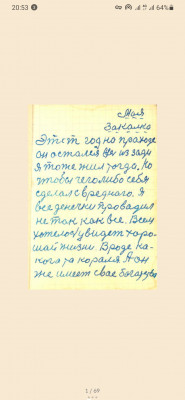 20:53
89
Моя
Закалка
Этот год на праходе
он остался
я тоже жил тогда. Ко
чтобы чего либо себя
сделал вредного. Я
все денечки проводил
не так как все. Всем
хотелось увидет харо-
шай жизни. Вроде ка-
кого та кораля А он
же имеет свае
1 / 69